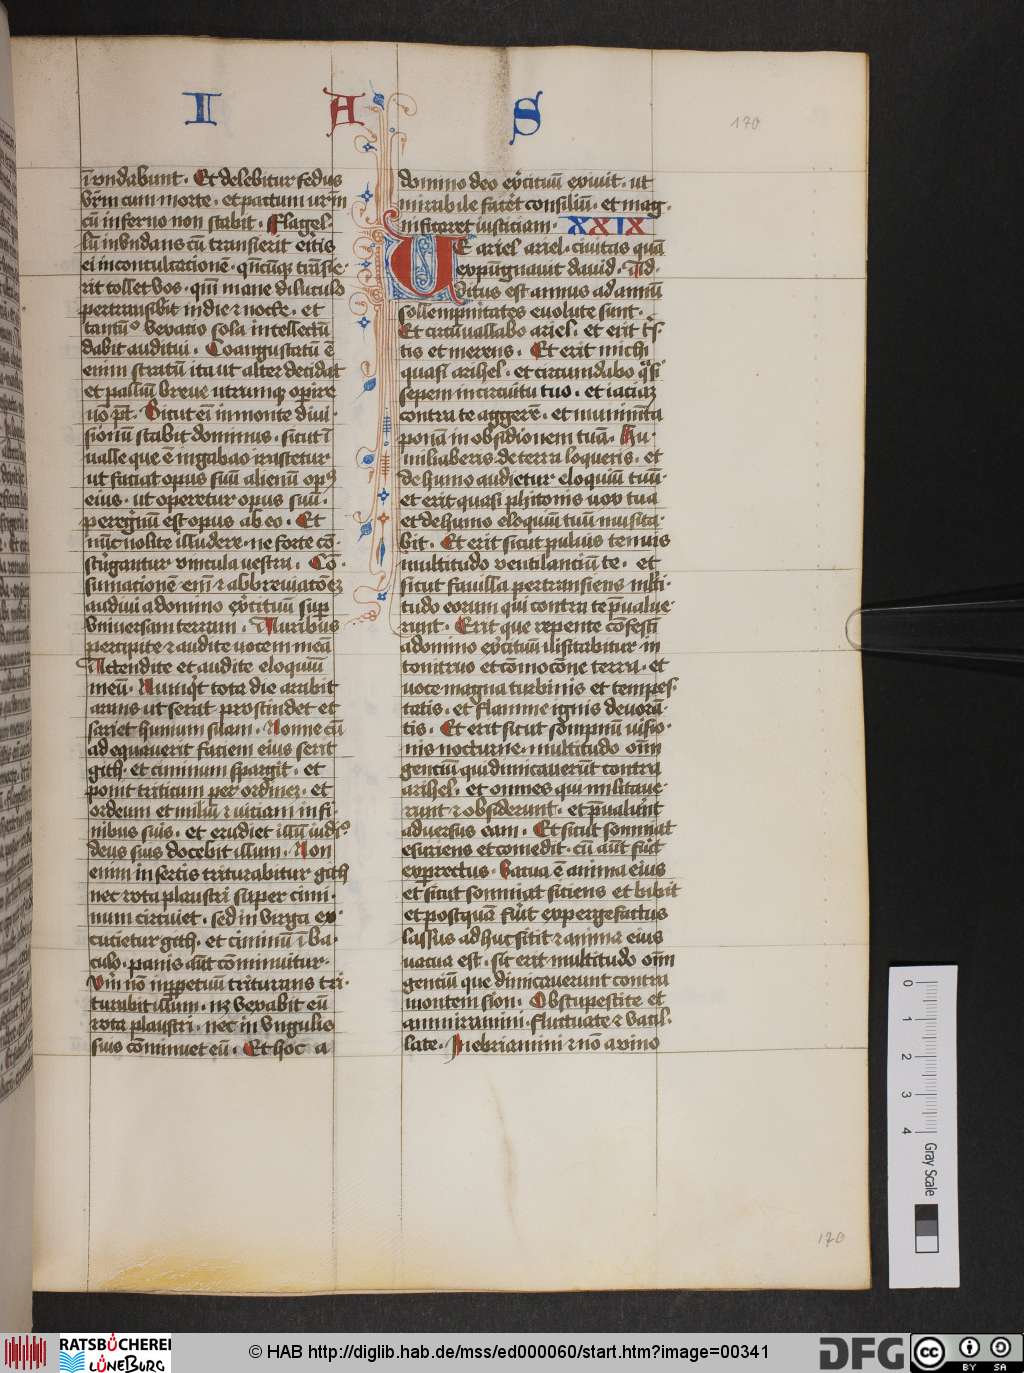 I A S
170
īundabunt · Et delebitur fedus
vr̄m cum morte · et pactum urm̄
cū inferno non stabit · Flagel·
lū inundans cū transierit eritis
ei inconculcacionē · qn̄cūq; trāsie·
rit tollet vos · qm̄ mane diluculo
pertransibit in die et nocte · et
tantū⁹ vexatio sola intellectū
dabit auditui · Coangustatū ē
enim stratū ita ut alter decidat
et palliū breue utrumq; operire
nō pt̄ · Sicut eī in monte diui·
sionū stabit dominus · sicut ī
ualle que ē in gabao irascetur
ut faciat opus suū alienū op⁹
eius · ut operetur opus suū ·
peregrinū est opus ab eo · Et
nūc nolite illudere · ne forte cō·
stringantur vincula uestra · Cō·
sumacionē enī et abbreuiacōeȝ
audiui a domino exercituū sup
vniuersam terram · Auribus
percipite et audite uocem meā
Attendite et audite eloquiū
meū · Numq't tota die arabit
arans ut serat proscindet et
sariet humum suam · Nonne cū
adequauerit faciem eius seret
gith · et ciminum spargit · et
ponit triticum per ordineȝ · et
ordeum et miliū et uiciam in fi·
nibus suis · et erudiet illū iudi⁹
deus suus docebit illum · Non
enim in serris triturabitur gith
nec rota plaustri super cimi·
num circuiet · sed in virga ex·
cutietur gith · et ciminū ī ba·
culo · panis aūt cōminuitur ·
Vm̄ nō inp̄petuū triturans tri·
turabit illum · nȝ vexabit eū
rota plaustri · nec in vngulis
suis cōminuet eū · Et hoc a
domino deo exercituū exiuit · ut
mirabile faceret consiliū · et mag·
nificaret iusticiam · XXIX
VE ariel ariel · ciuitas quā
expugnauit dauid · Ad·
ditus est annus ad annū
sollempnitates euolute sunt ·
Et circūuallabo ariel · et erit t's
tis et merens · Et erit michi
quasi arihel · et circumdabo q'si
sepem in circuitu tuo · et iaciaȝ
contra te aggerē · et munimēta
ponā in obsidionem tuā · Hu·
miliaberis de terra loqueris · et
de humo audietur eloquiū tuū ·
et erit quasi phitonis uox tua
et de humo eloquiū tuū mussita·
bit · Et erit sicut puluis tenuis
multitudo ventilanciū te · et
sicut fauilla pertransiens mlti·
tudo eorum qui contra te p̄ualue·
runt · Erit que repente cōfestī
a domino exercituū uisitabitur in
tonitruo et cōmocōne terra · et
uoce magna turbinis et tempes·
tatis · et flamme ignis deuorā·
tis · Et erit sicut sompnū uisio·
nis nocturne · multitudo om̄
genciū qui dimicauerūt contra
arihel · et omnes qui militaue·
runt et obsiderunt · et p̄ualu'nt
aduersus eam · Et sicut somniat
esuriens et comedit · cū aūt fu'it
experrectus · Vacua ē anima eius
et sicut somniat siciens et bibit
et postquā fu'it expergefactus
lassus adhuc sitit et anima eius
uacua est · sic erit multitudo om̄
genciū que dimicauerunt contra
montem sion · Obstupescite et
ammiramini · fluctuate et vacil·
late · Inebriamini et nō a uino
170
0 1 2 3 4
Gray Scale
RATSBÜCHEREI
LÜNEBURG
© HAB http://diglib.hab.de/mss/ed000060/start.htm?image=00341
DFG
cc BY SA